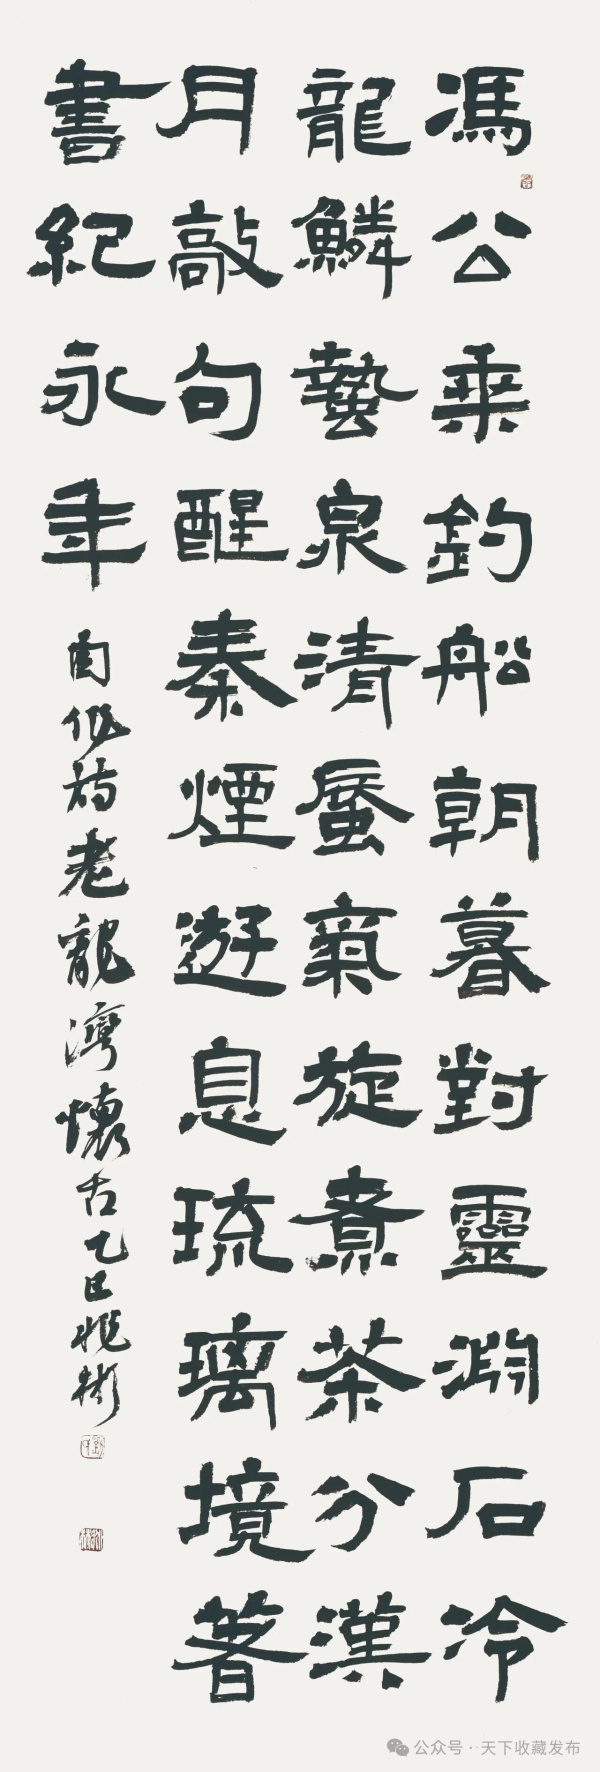 馮公乘釣船朝暮對靈淵石冷
龍鱗蟄泉清蜃氣旋煮茶分漢
月敲句醒秦煙遊息琉璃境著
書紀永年
老龍灣懷古乙巳兆彬
公众号·天下收藏发布